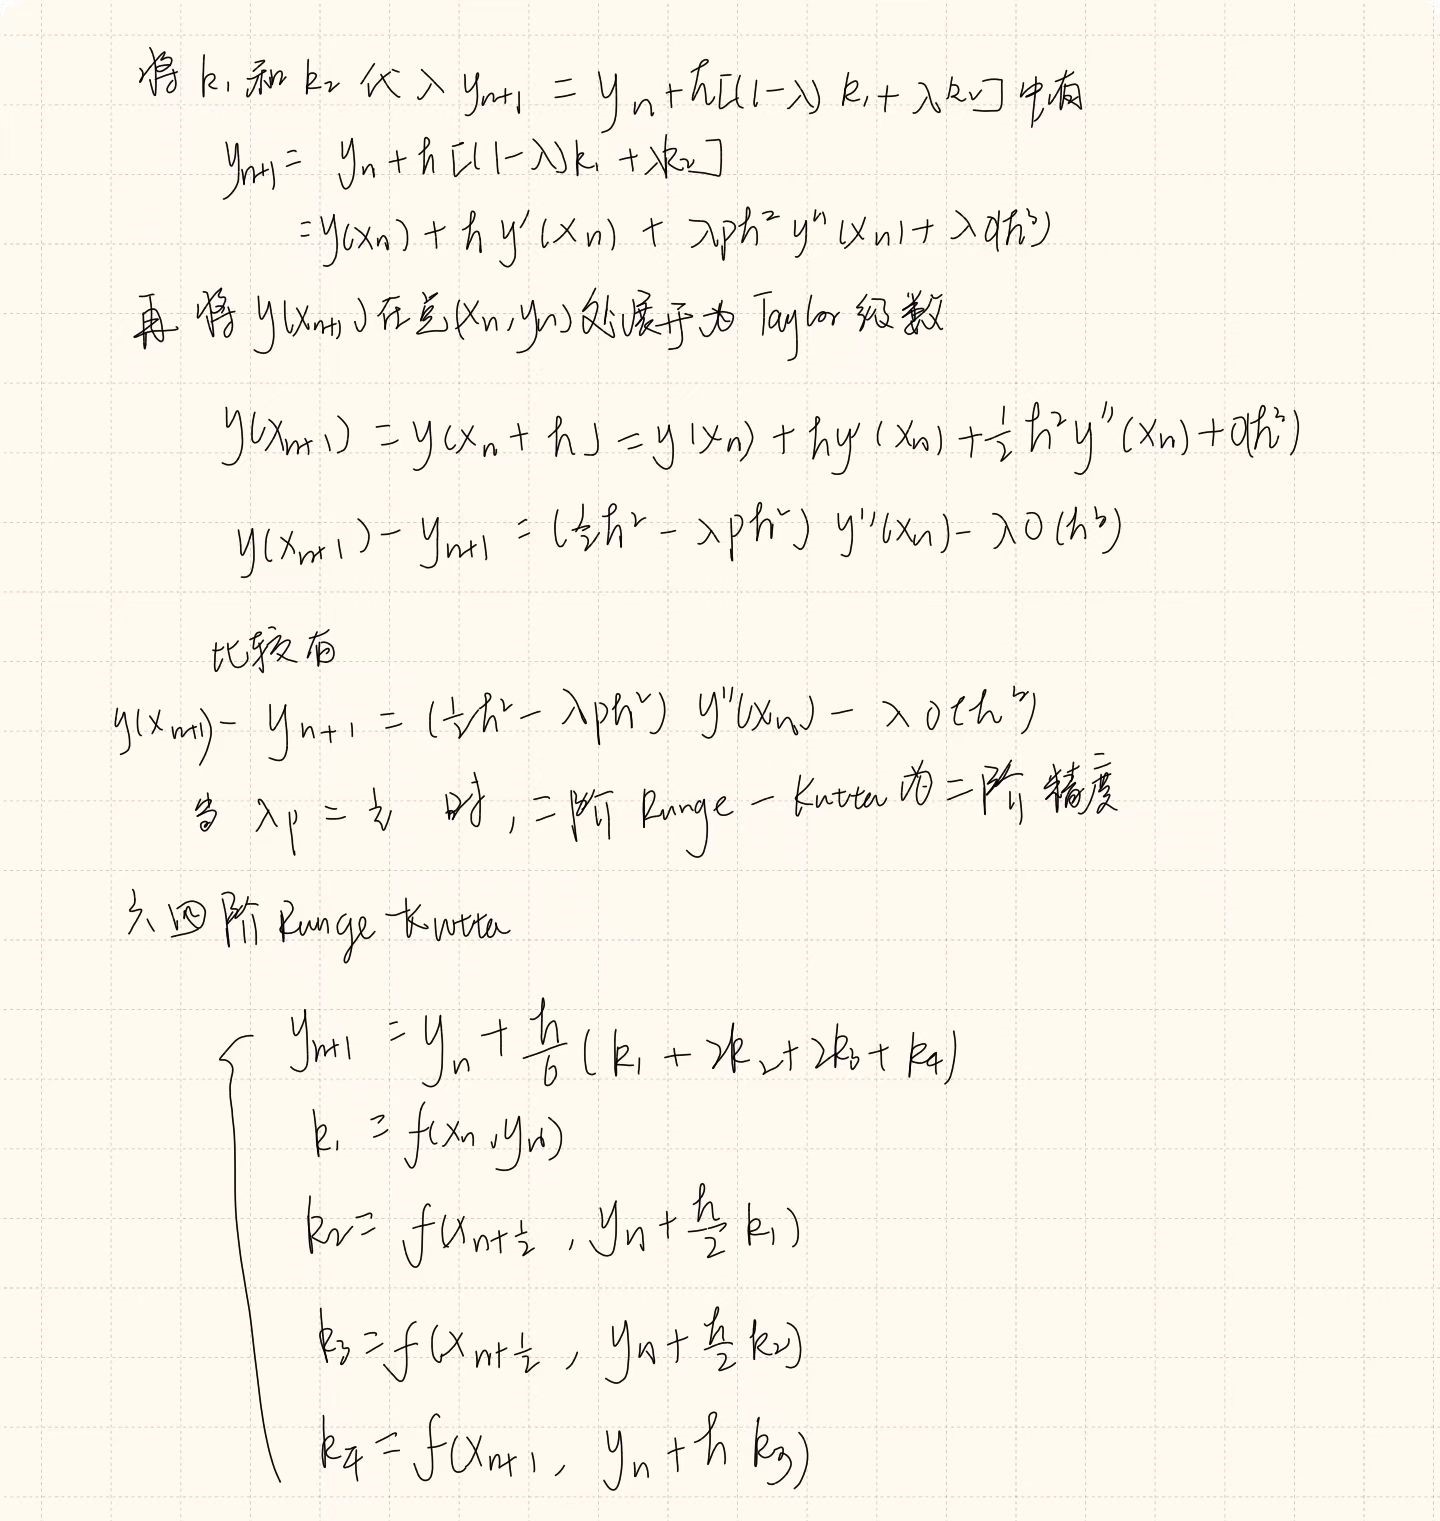 将 k₁ 和 k₂ 代入 yₙ₊₁ = yₙ + h[(1-λ) k₁ + λk₂] 中有
yₙ₊₁ = yₙ + h[(1-λ)k₁ + λk₂]
= y(xₙ) + h y'(xₙ) + λph² y''(xₙ) + λO(h³)
再将 y(xₙ₊₁) 在点(xₙ, yₙ)处展开为 Taylor 级数
y(xₙ₊₁) = y(xₙ + h) = y(xₙ) + hy'(xₙ) + ½h²y''(xₙ) + O(h³)
y(xₙ₊₁) - yₙ₊₁ = (½h² - λph²) y''(xₙ) - λO(h³)
比较有
y(xₙ₊₁) - yₙ₊₁ = (½h² - λph²) y''(xₙ) - λO(h³)
当 λp = ½ 时, 二阶 Runge-Kutta 为二阶精度
六四阶 Runge-Kutta
yₙ₊₁ = yₙ + h/6 (k₁ + 2k₂ + 2k₃ + k₄)
k₁ = f(xₙ, yₙ)
k₂ = f(x_{n+½}, yₙ + h/2 k₁)
k₃ = f(x_{n+½}, yₙ + h/2 k₂)
k₄ = f(xₙ₊₁, yₙ + h k₃)